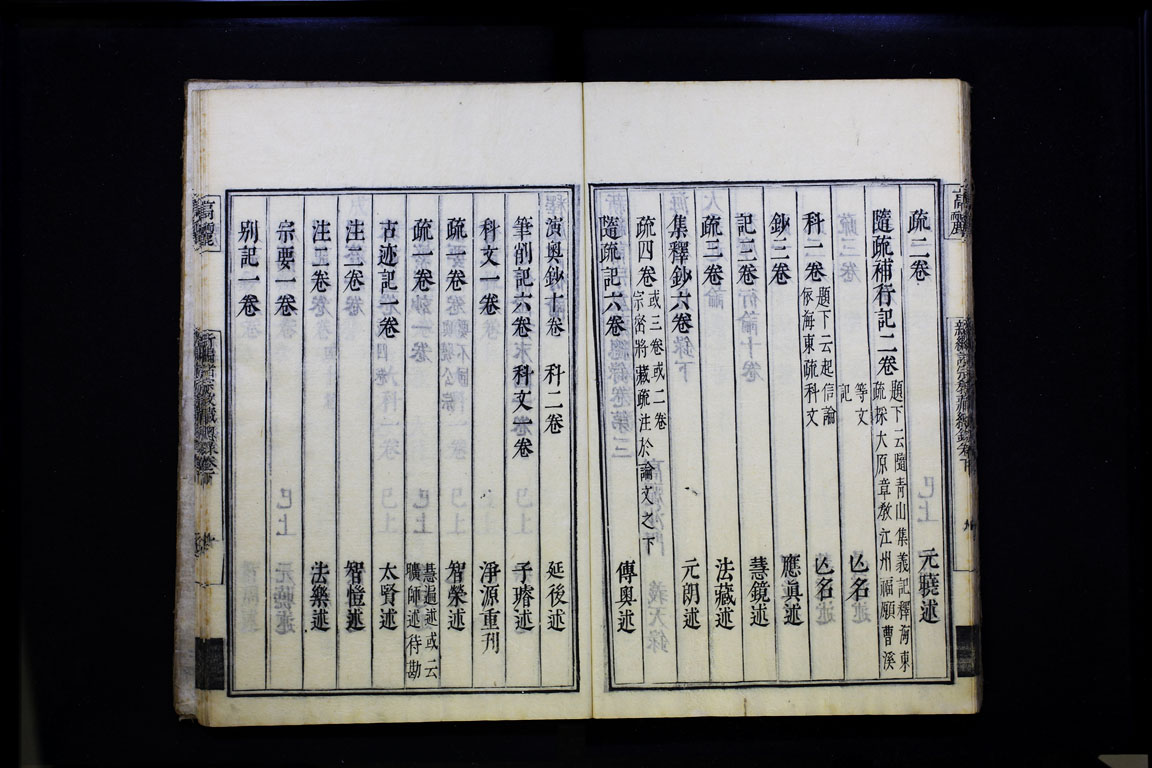 疏二卷 元曉述
隨疏補行記二卷 題下云隨青山集義記釋海東疏採大原章敎江州福願曹溪等文記 亾名
科二卷 題下云起信論依海東疏科文 亾名
鈔三卷 應眞述
記三卷 慧鏡述
疏三卷 法藏述
集釋鈔六卷 元朗述
疏四卷 或三卷或二卷宗密將藏疏注於論文之下
隨疏記六卷 傳奧述
演奧鈔十卷 科二卷 延俊述
筆削記六卷 科文一卷 子璿述
科文一卷 淨源重刊
疏一卷 智榮述
疏一卷 慧遠述或云曠師述待勘
古迹記一卷 太賢述
注二卷 智愷述
注二卷 法樂述
宗要一卷
別記一卷
高麗
新編諸宗敎藏總錄卷下